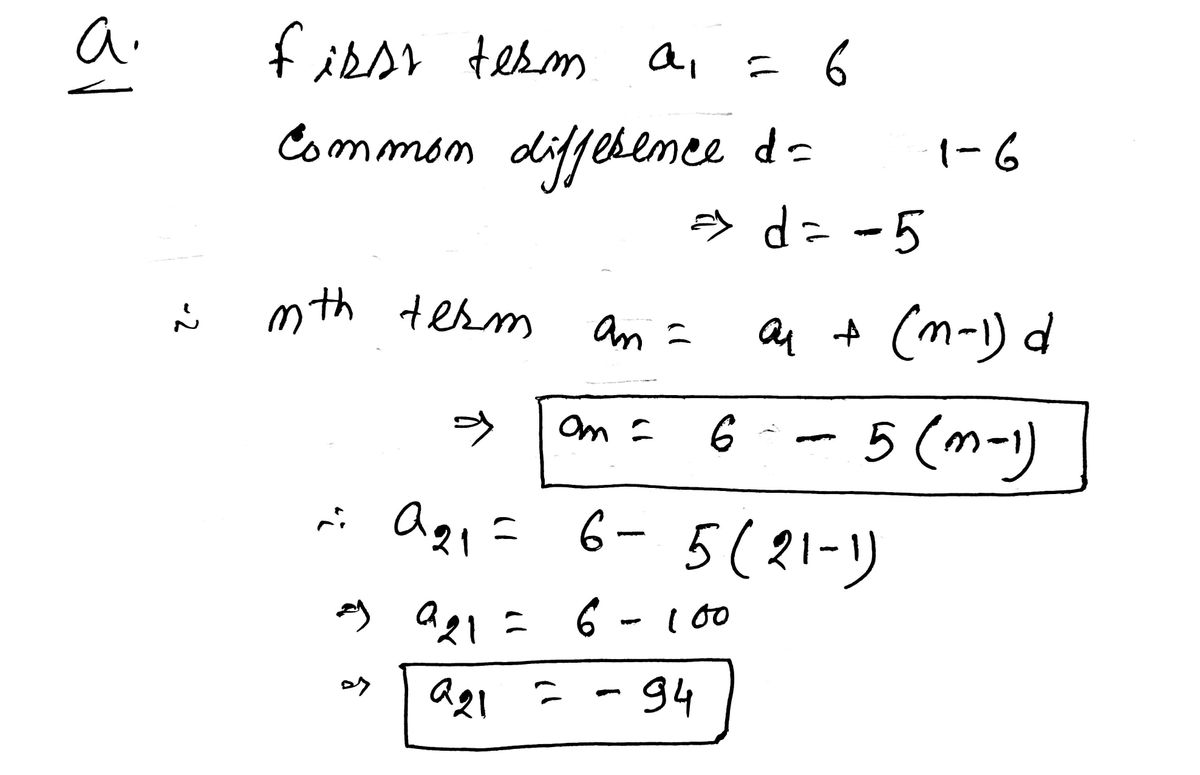 a. first term a₁ = 6
Common difference d = 1-6
⇒ d = -5
∴ nth term an = a₁ + (n-1) d
⇒ an = 6 - 5 (n-1)
∴ a₂₁ = 6 - 5 (21-1)
⇒ a₂₁ = 6 - 100
⇒ a₂₁ = - 94